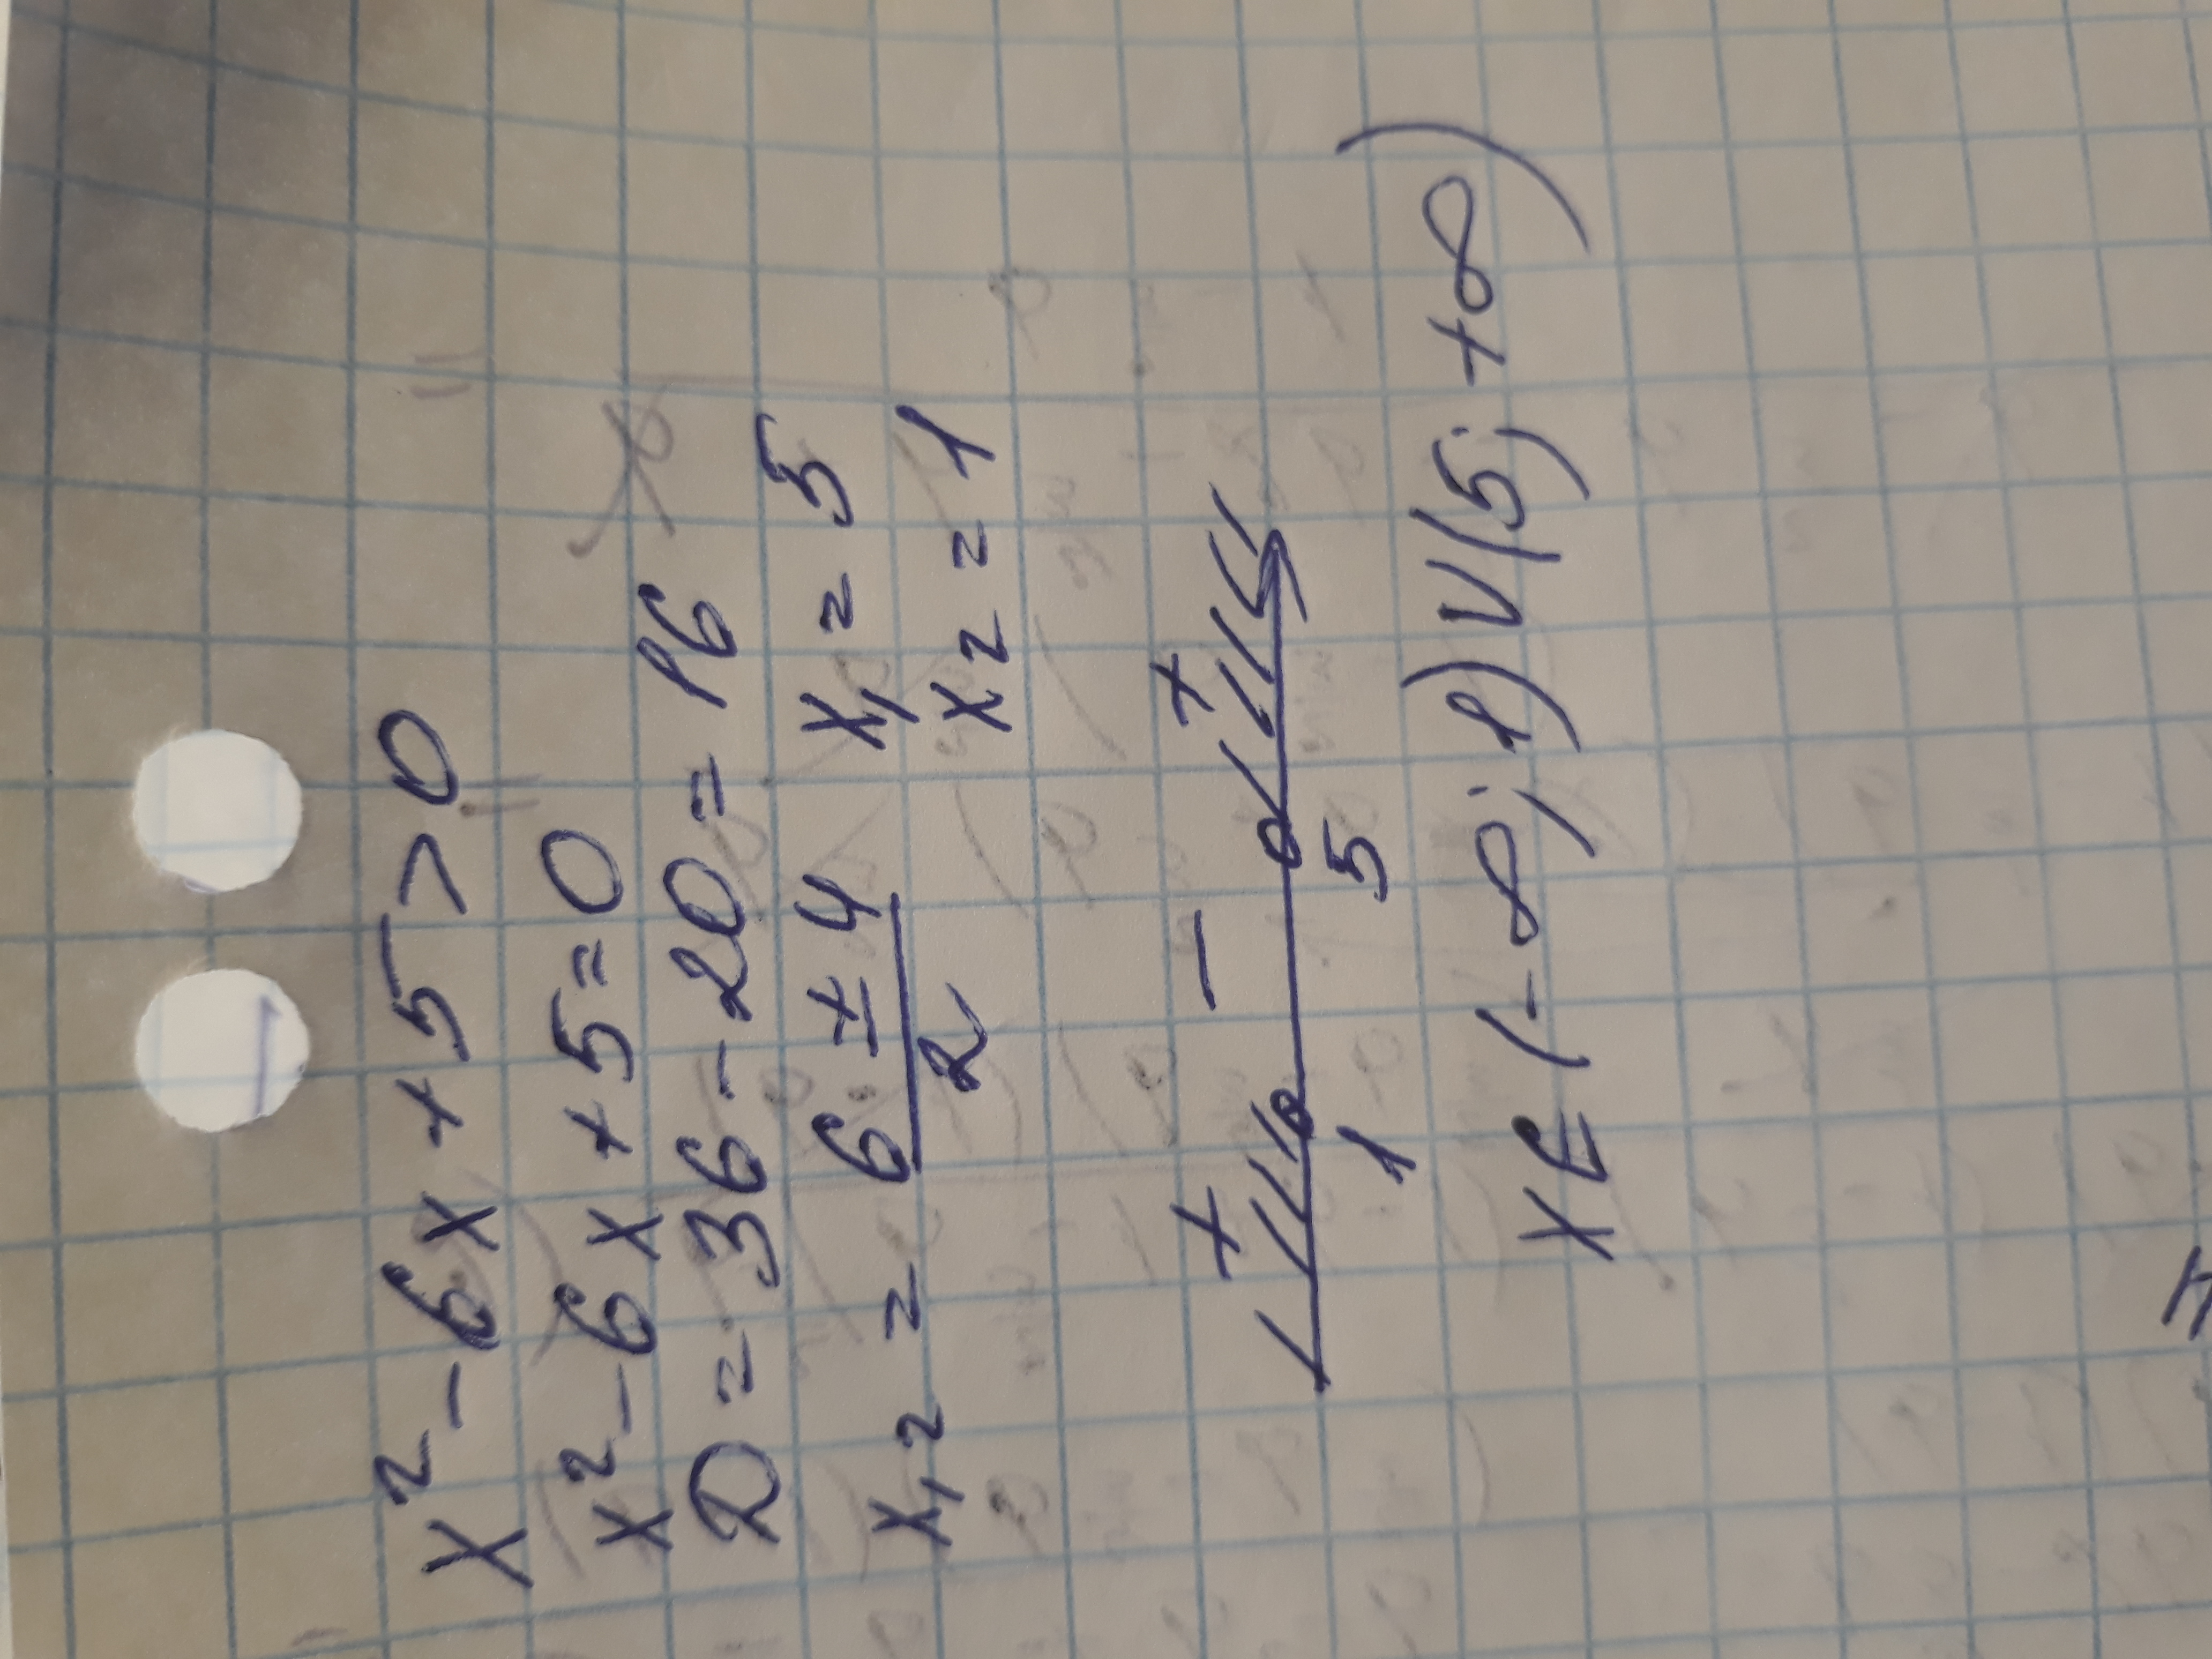 x² - 6x + 5 > 0
x² - 6x + 5 = 0
D = 36 - 20 = 16
x₁,₂ = (6 ± 4)/2 x₁ = 5
x₂ = 1
+ - +
1 5
x ∈ (-∞; 1) ∪ (5; +∞)